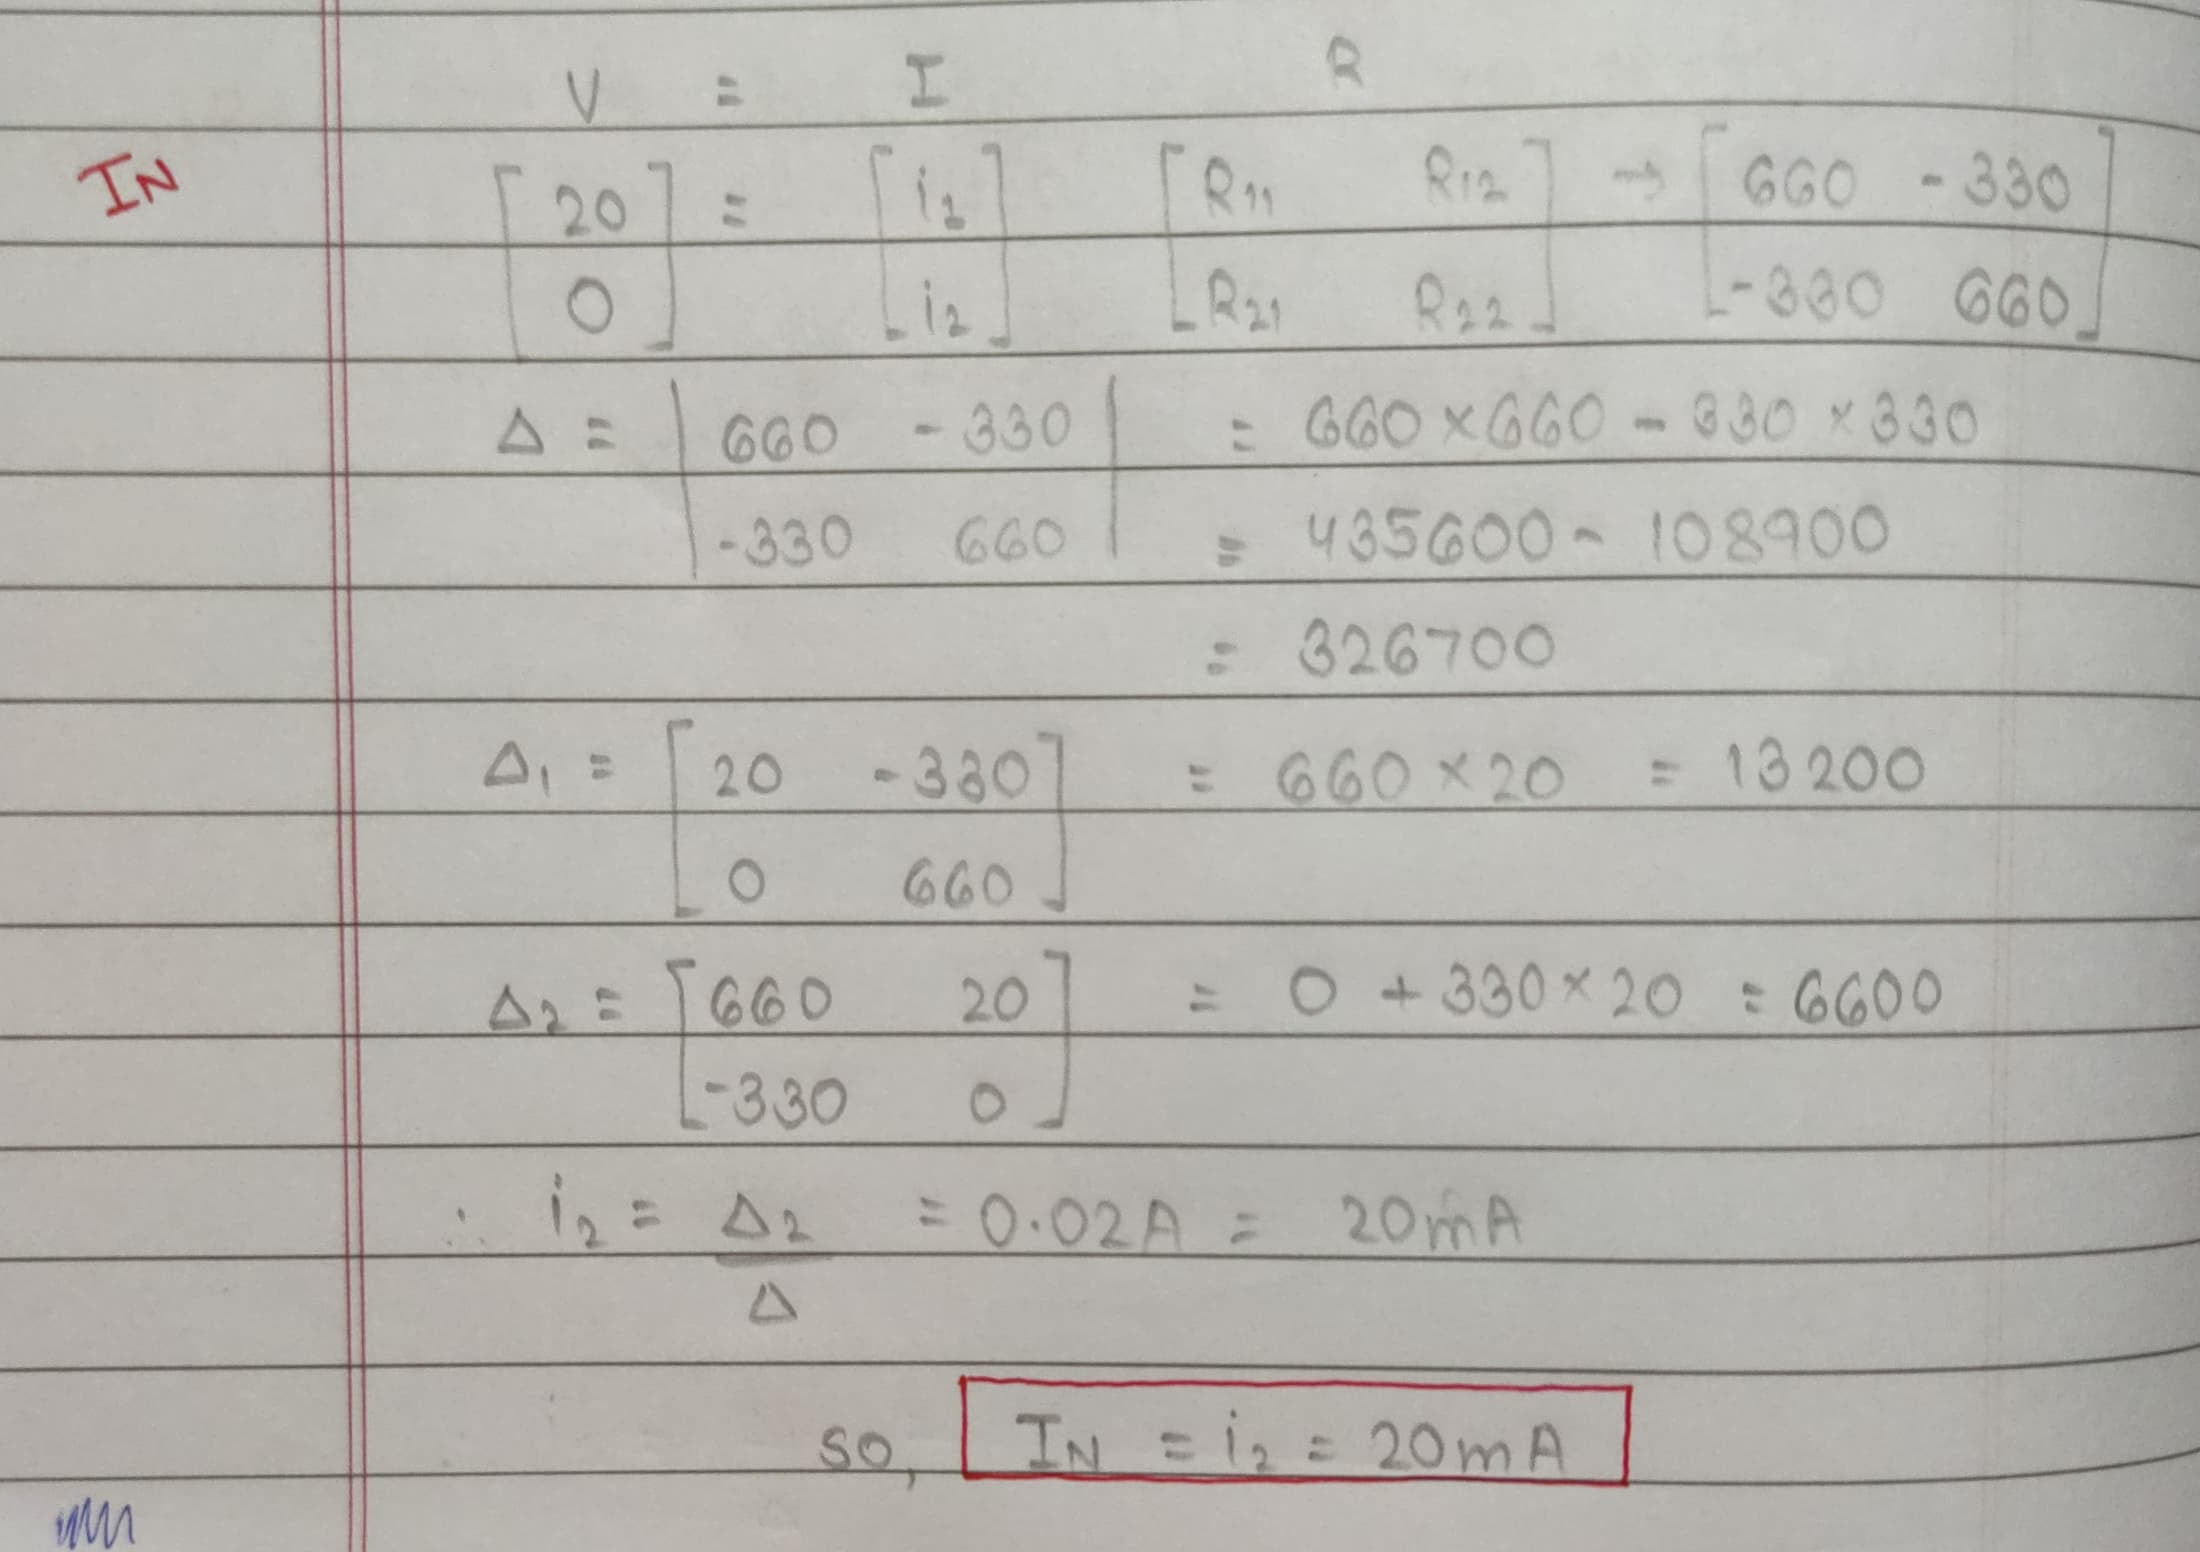 V = I R
IN [20 0] = [i1 i2] [R11 R12 R21 R22] → [660 -330 -330 660]
Δ = |660 -330 -330 660| = 660 × 660 - 330 × 330
= 435600 - 108900
= 326700
Δ1 = [20 -330 0 660] = 660 × 20 = 13200
Δ2 = [660 20 -330 0] = 0 + 330 × 20 = 6600
∴ i2 = Δ2/Δ = 0.02A = 20mA
so, IN = i2 = 20mA